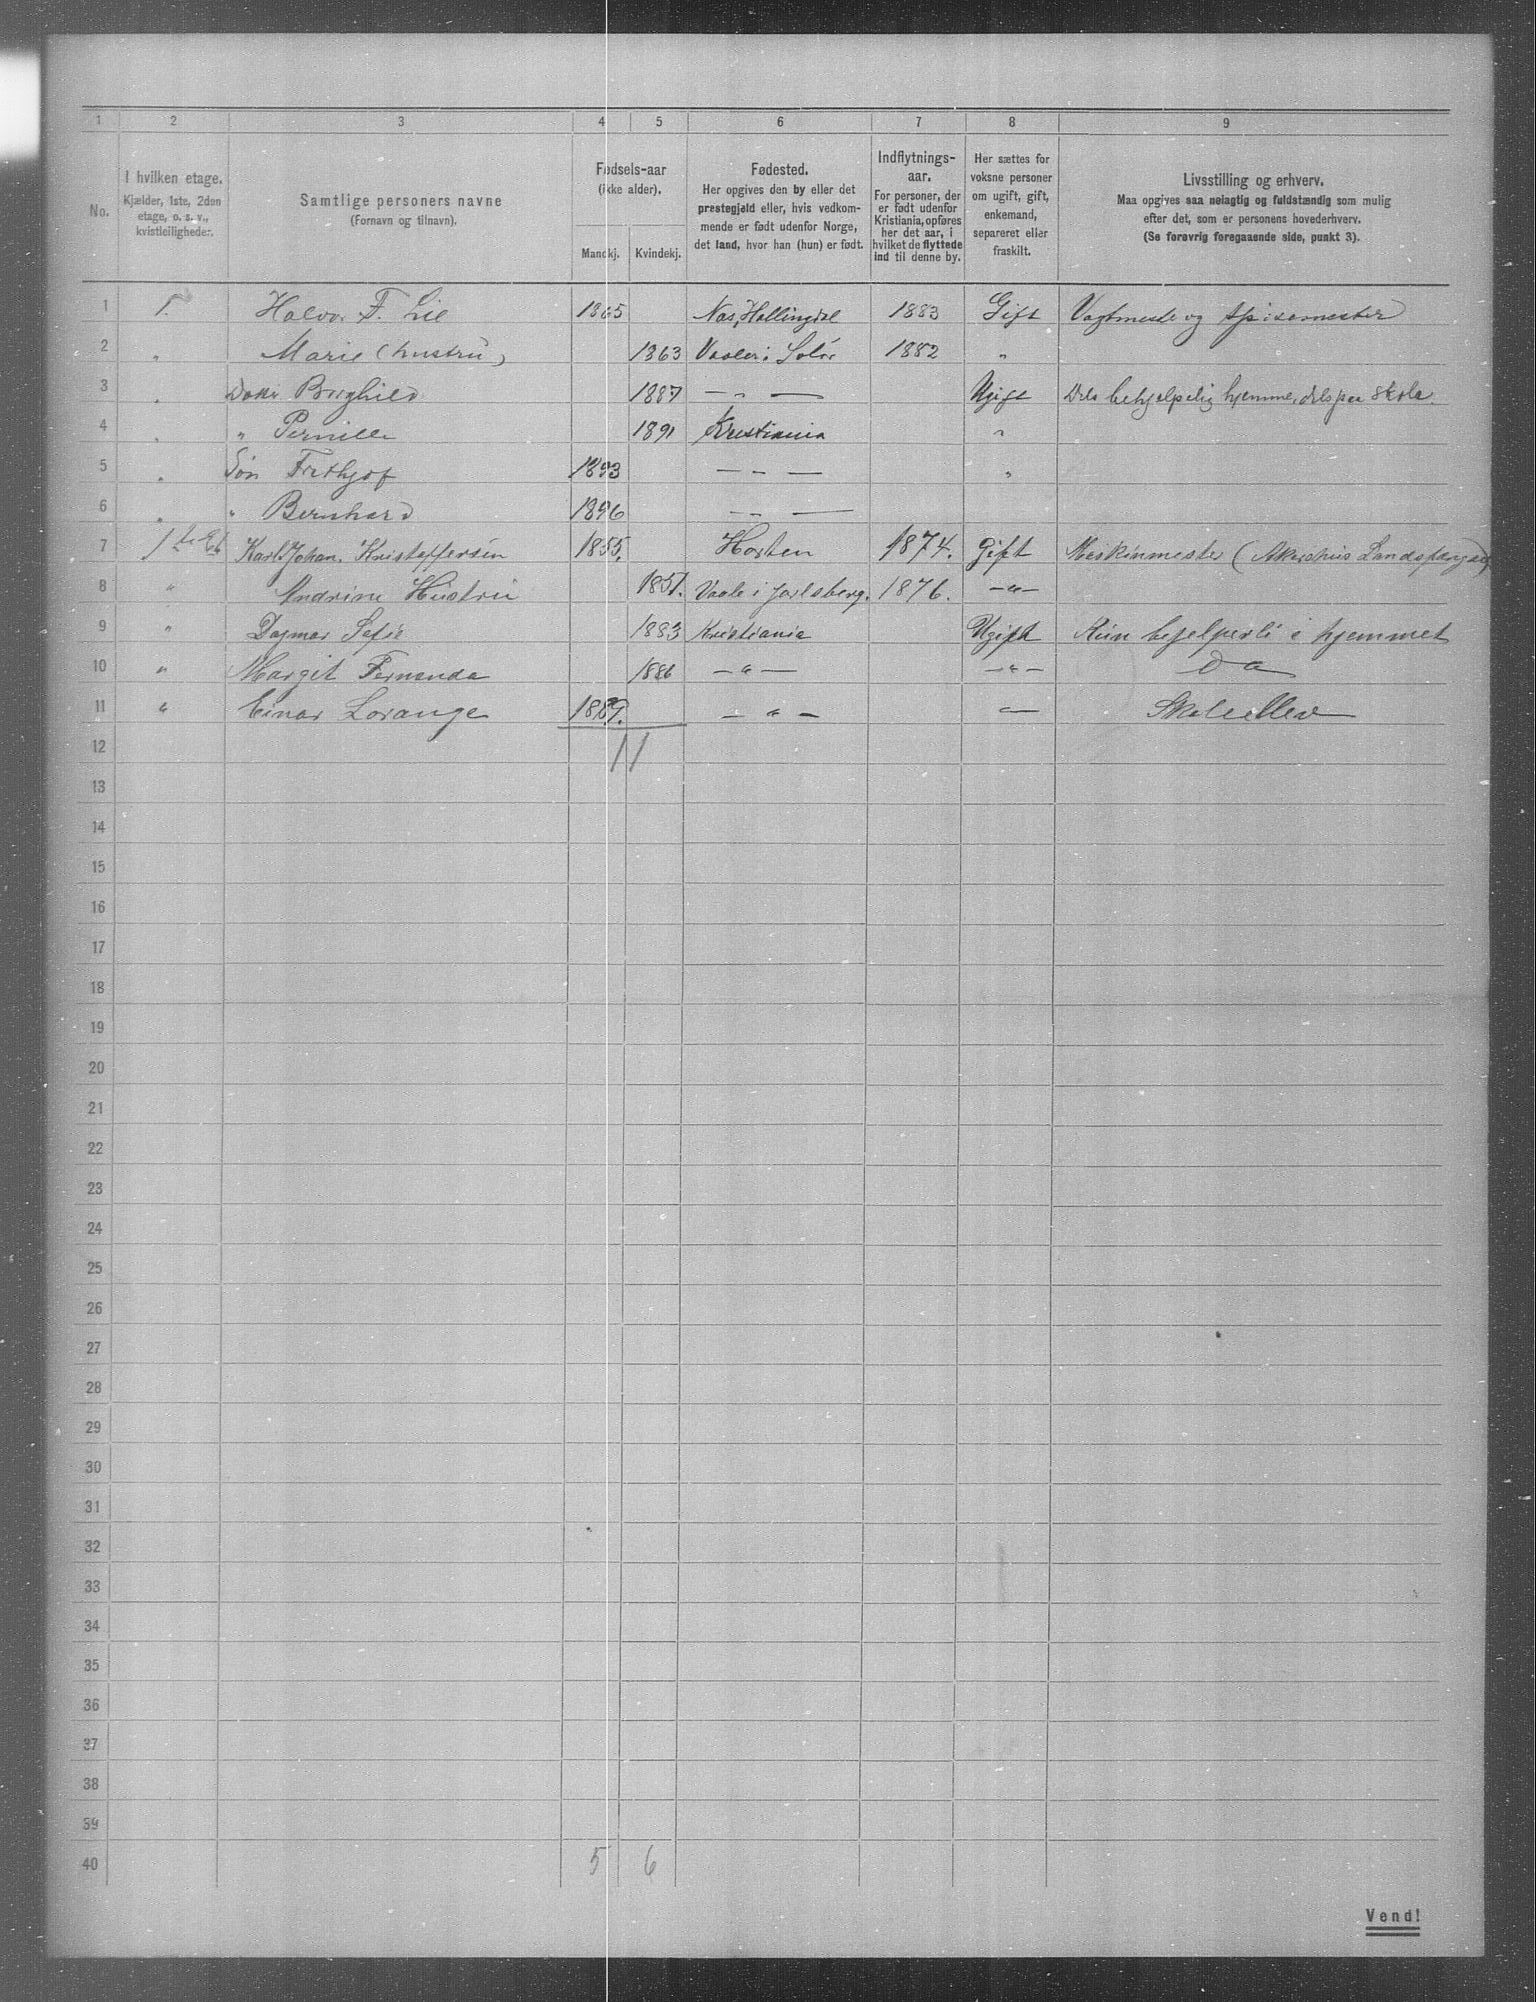 1 2 3 4 5 6 7 8 9
No.
I hvilken etage.
Kjælder, 1ste, 2den
etage, o. s. v.,
kvistleiligheder.
Samtlige personers navne
(Fornavn og tilnavn).
Fødsels-aar
(ikke alder).
Mandkj. Kvindekj.
Fødested.
Her opgives den by eller det
prestegjeld eller, hvis vedkom-
mende er født udenfor Norge,
det land, hvor han (hun) er født.
Indflytnings-
aar.
For personer, der
er født udenfor
Kristiania, opføres
her det aar, i
hvilket de flyttede
ind til denne by.
Her sættes for
voksne personer
om ugift, gift,
enkemand,
separeret eller
fraskilt.
Livsstilling og erhverv.
Maa opgives saa nøiagtig og fuldstændig som mulig
efter det, som er personens hovederhverv.
(Se forøvrig foregaaende side, punkt 3).
1 1. Halvor F. Lie 1865 Nas, Hallingdal 1883 Gift Vagtmester og Spisemester
2 " Marie (hustru) 1863 Vaaler i Solør 1882 "
3 " Dotter Borghild 1887 — " — Ugift Dels behjelpelig hjemme, dels paa skole
4 " " Pernille 1891 Kristiania "
5 " Søn Frithjof 1893 — " — "
6 " " Bernhard 1896 — " —
7 1ste Et. Karl Johan. Kristoffersen 1855. Horten 1874. Gift Maskinmester (Akershus Landsfængsel)
8 " Andrine Hustru 1851. Vaale i Jarlsberg. 1876. — " —
9 " Dagmar Sofie 1883 Kristiania Ugift Kun behjelpeli i hjemmet
10 " Margit Fernanda 1886 — " — — " — Do
11 " Einar Lorange 1889. — " — — " — Skoleellev
12 11
13
14
15
16
17
18
19
20
21
22
23
24
25
26
27
28
29
30
31
32
33
34
35
36
37
38
39
40 5 6
Vend!